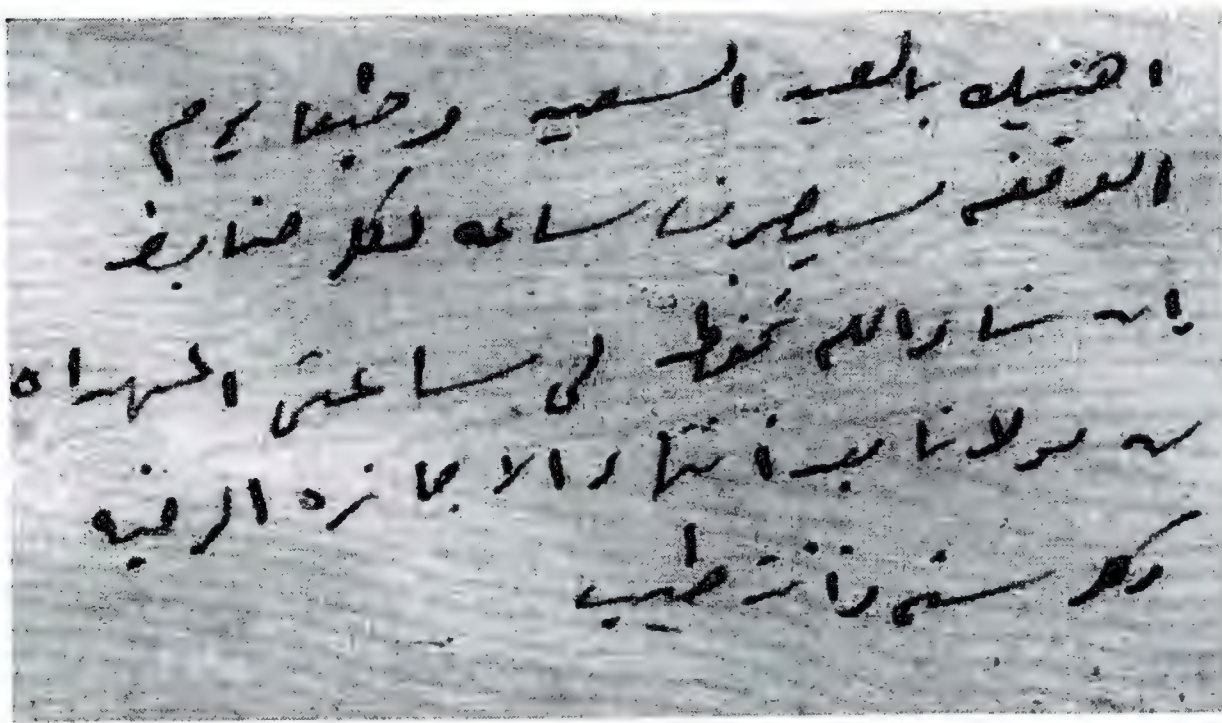 اهنيك بالعيد السعيد يوم
الوقفه ساعه لكل ضابط
ان شاء الله تحفظ لى ساعتى المهداه
من مولانا بعد انتهاء الاجازه المرضيه
وكل سنه وانت طيب